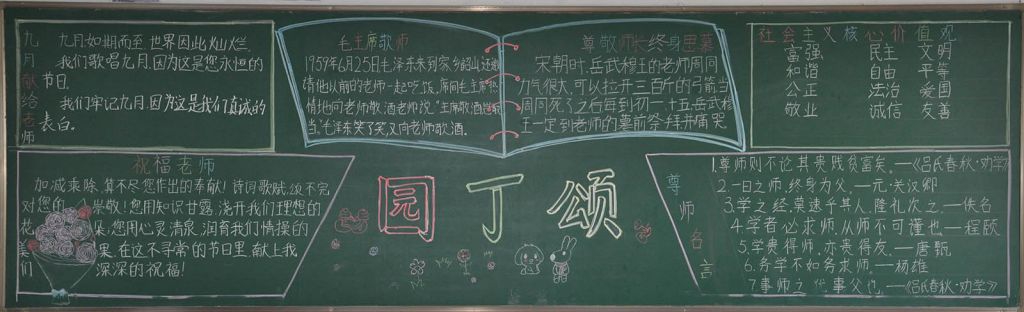 九月献给老师
九月如期而至,世界因此灿烂,
我们歌唱九月,因为这是您永恒的
节日。
我们牢记九月,因为这是我们真诚的
表白。
毛主席敬师
1959年6月25日毛泽东来到家乡韶山,还邀
请他以前的老师一起吃饭,席间毛主席热
情地向老师敬酒,老师说:"主席敬酒,岂敢岂敢
当。"毛泽东笑了笑,又向老师敬酒。
尊敬师长终身思慕
宋朝时,岳武穆王的老师周同
力气很大,可以拉开三百斤的弓箭,当
周同死了之后每到初一、十五,岳武穆
王一定到老师的墓前祭拜并痛哭。
社会主义核心价值观
富强 民主 文明
和谐 自由 平等
公正 法治 爱国
敬业 诚信 友善
祝福老师
加减乘除,算不尽您作出的奉献!诗词歌赋,颂不完
对您的崇敬!您用知识甘露,浇开我们理想的
花朵;您用心灵清泉,润育我们情操的
美果。在这不寻常的节日里,献上我
们深深的祝福!
园丁颂
尊师名言
1.尊师则不论其贵贱贫富矣。——《吕氏春秋·劝学》
2.一日之师,终身为父。——元·关汉卿
3.学之经,莫速乎其人,隆礼次之。——佚名
4.学者必求师,从师不可谨也。——程颐
5.学贵得师,亦贵得友。——唐甄
6.务学不如务求师。——杨雄
7.事师之 ,事父也。——《吕氏春秋·劝学》